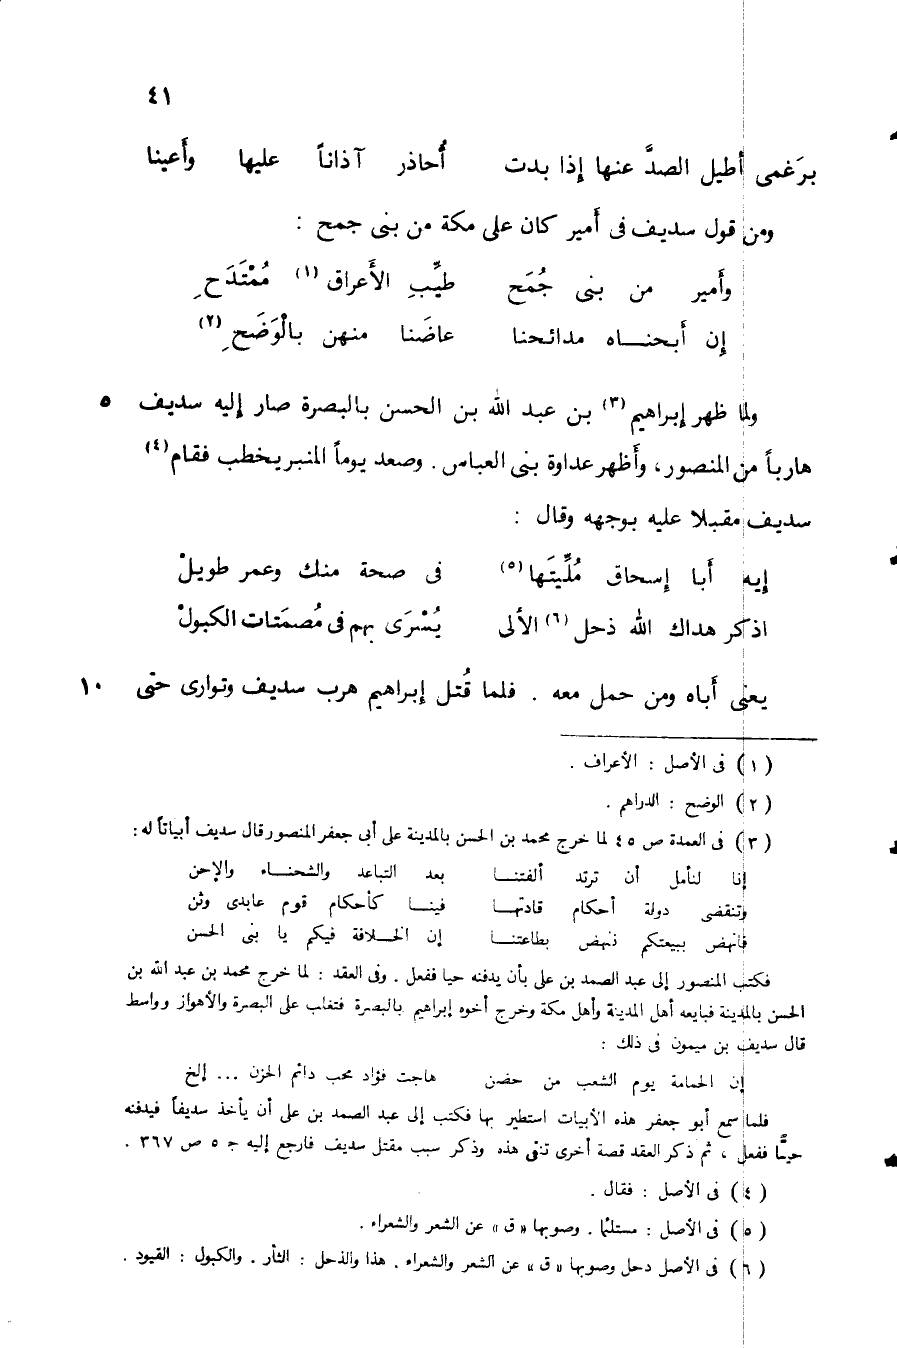 ٤١
برَغمى أطيل الصدَّ عنها إذا بدت أُحاذر آذاناً عليها وأَعينا
ومن قول سديف فى أَمير كان على مكة من بنى جمح :
وأَمير من بنى جُمَح طيِّبِ الأَعراق (١) مُمْتَدَحِ
إن أَبحنــاه مدائحنا عاضَنا منهن بالْوَضَحِ (٢)
ولما ظهر إبراهيم (٣) بن عبد الله بن الحسن بالبصرة صار إليه سديف ٥
هارباً من المنصور، وأَظهر عداوة بنى العباس . وصعد يوماً المنبر يخطب فقام (٤)
سديف مقبلا عليه بوجهه وقال :
إيه أَبا إسحاق مُلِّيتَها (٥) فى صحة منك وعمر طويلْ
اذكر هداك الله ذحل (٦) الألى يُسْرَى بهم فى مُصمَتات الكبولْ
يعنى أَباه ومن حمل معه . فلما قُتل إبراهيم هرب سديف وتوارى حتى ١٠
(١) فى الأصل : الأعراف .
(٢) الوضح : الدراهم .
(٣) فى العمدة ص ٤٥ لما خرج محمد بن الحسن بالمدينة على أبى جعفر المنصور قال سديف أبياتاً له :
إنا لنأمل أن ترتد ألفتنــا بعد التباعد والشحنــاء والإحن
وتنقضى دولة أحكام قادتهــا فينــا كأحكام قوم عابدى وثن
فانهض ببيعتكم ننهض بطاعتنــا إن الخــلافة فيكم يا بنى الحسن
فكتب المنصور إلى عبد الصمد بن على بأن يدفنه حيا ففعل . وفى العقد : لما خرج محمد بن عبد الله بن
الحسن بالمدينة فبايعه أهل المدينة وأهل مكة وخرج أخوه إبراهيم بالبصرة فتغلب على البصرة والأهواز وواسط
قال سديف بن ميمون فى ذلك :
إن الحمامة يوم الشعب من حضن هاجت فؤاد محب دائم الحزن ... إلخ
فلما سمع أبو جعفر هذه الأبيات استطير بها فكتب إلى عبد الصمد بن على أن يأخذ سديفاً فيدفنه
حيًّا ففعل ، ثم ذكر العقد قصة أخرى تنقى هذه وذكر سبب مقتل سديف فارجع إليه جـ ٥ ص ٣٦٧ .
(٤) فى الأصل : فقال .
(٥) فى الأصل : مستلئا . وصوبها « ق » عن الشعر والشعراء .
(٦) فى الأصل دحل وصوبها « ق » عن الشعر والشعراء . هذا والذحل : الثأر . والكبول : القيود .